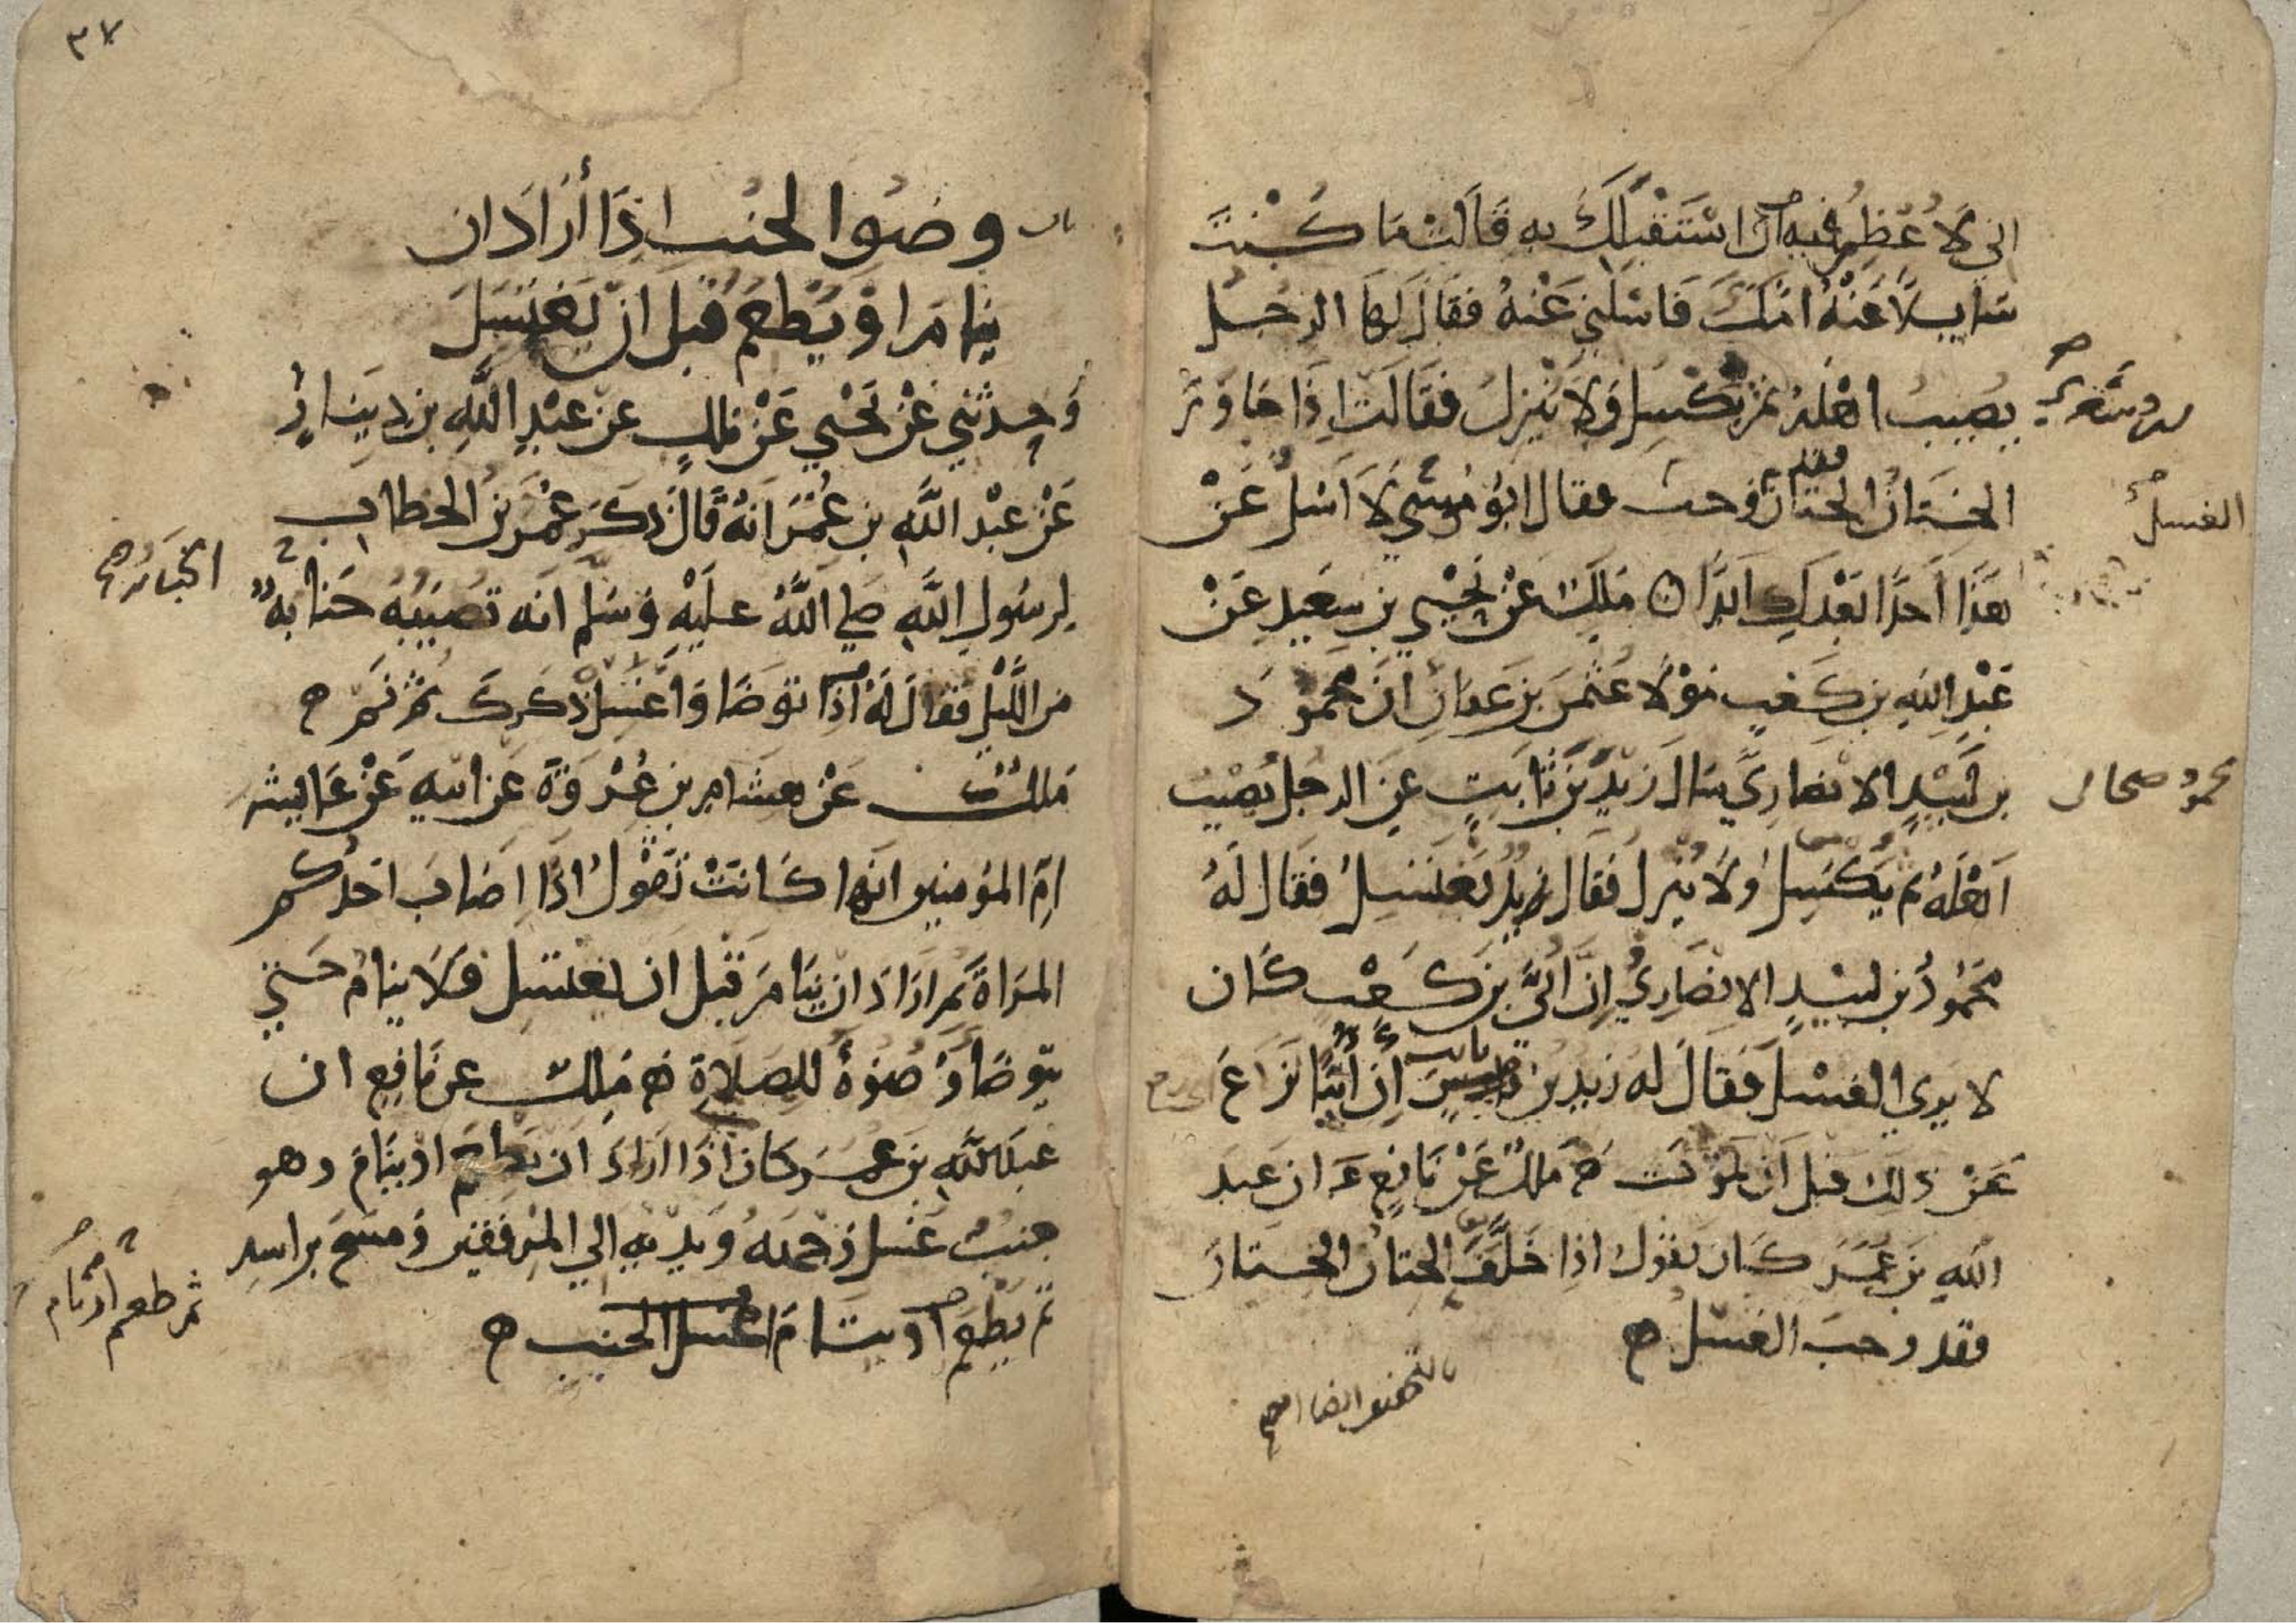 اني لاعظم فيه ان استقبلك به قالت ما كنت
سايلا عنه امك فاسلني عنه فقال لها الرجل
يصيب اهله ثم يكسل ولا ينزل فقالت اذا جاوز
الختان الختان فقد وجب فقال ابو موسى لا اسل عن
الغسل
هذا احدا بعدك ابدا ملك عن يحيى بن سعيد عن
عبد الله بن كعب مولا عثمن بن عفان ان محمود
بن لبيد الانصاري سال زيد بن ثابت عن الرجل يصيب
محمود صحابي
اهله ثم يكسل ولا ينزل فقال زيد يغتسل فقال له
محمود بن لبيد الانصاري ان ابي بن كعب كان
لا يرى الغسل فقال له زيد بن ثابت ان ابيا نزاع
عن ذلك قبل ان يموت ملك عن نافع ان عبد
الله بن عمر كان يقول اذا خلف الختان الختان
فقد وجب الغسل
٣٧
باب وضو الجنب اذا أراد ان
ينام او يطعم قبل ان يغتسل
وحدثني عن يحيى عن ملك عن عبد الله بن دينار
عن عبد الله بن عمر انه قال ذكر عمر بن الخطاب
لرسول الله صلى الله عليه وسلم انه تصيبه جنابة
من الليل فقال له توضا واغسل ذكرك ثم نم
ملك عن هشام بن عروة عن ابيه عن عايشة
ام المومنين انها كانت تقول اذا اصاب احدكم
المراة ثم اراد ان ينام قبل ان يغتسل فلا ينام حتى
يتوضا وضوه للصلاة ملك عن نافع ان
عبد الله بن عمر كان اذا اراد ان يطعم او ينام وهو
جنب غسل وجهه ويديه الى المرفقين ومسح براسه
ثم يطعم او ينام غسل الجنب
ثم طعم او نام